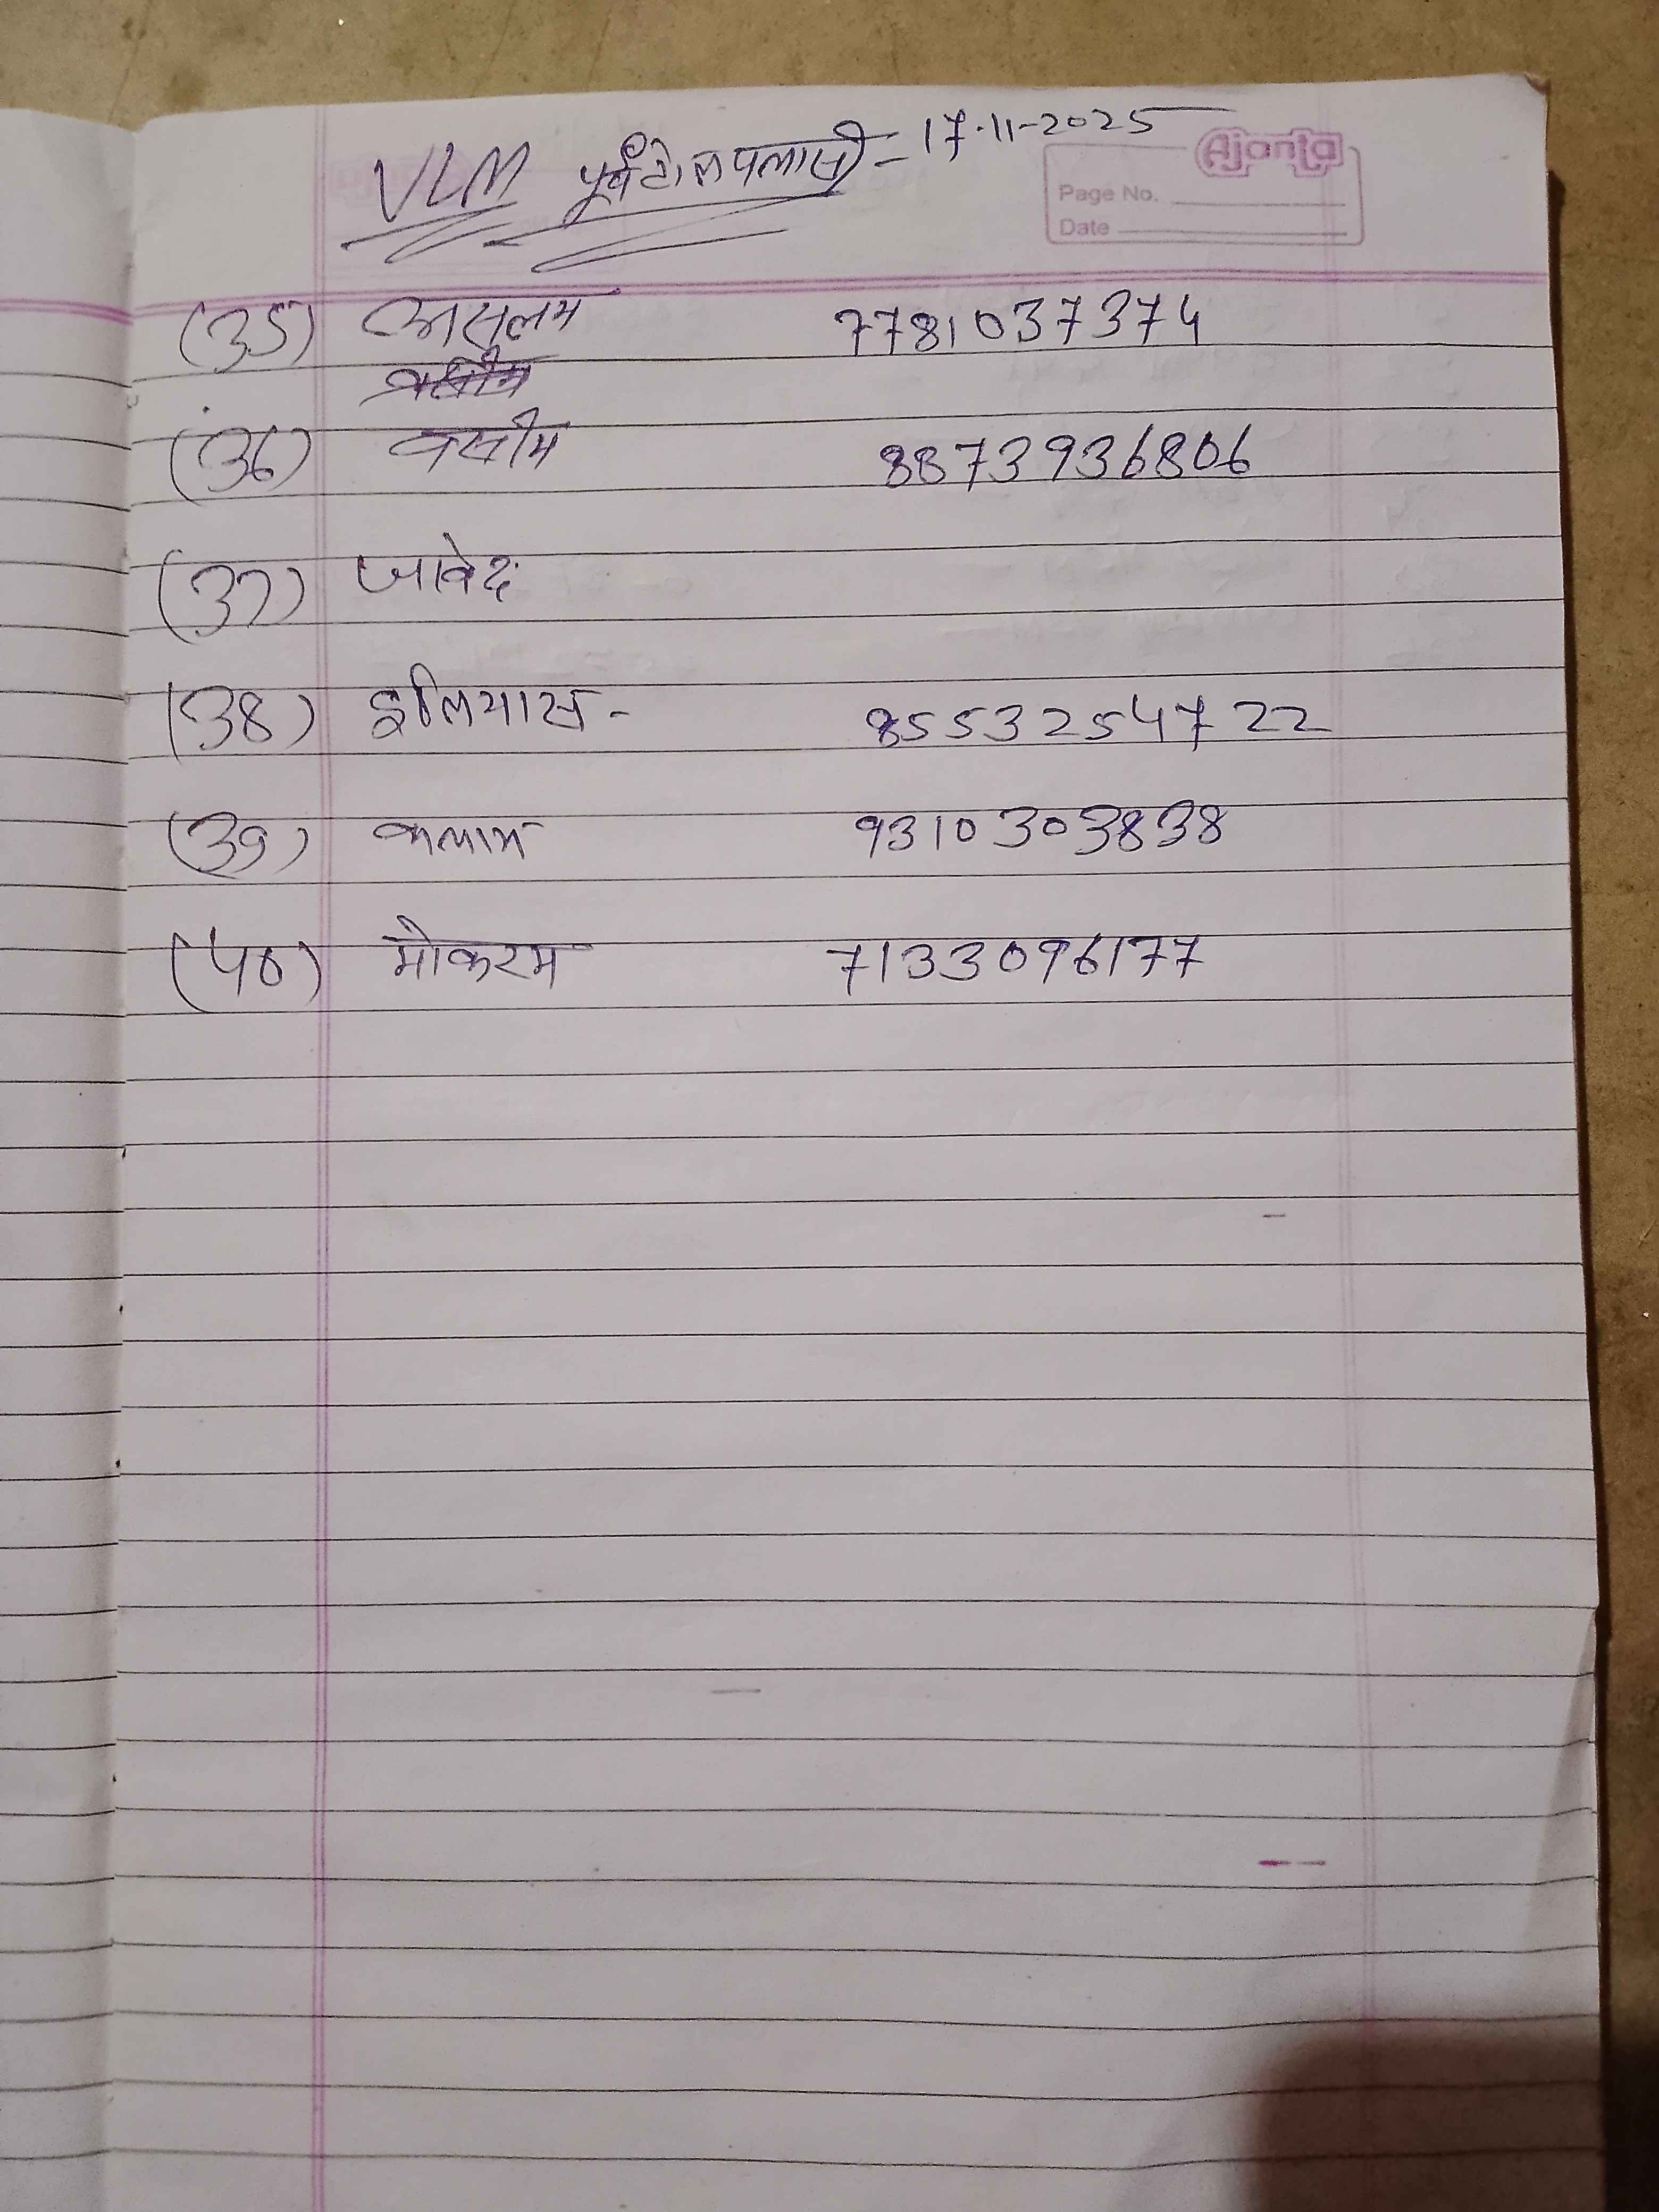 VLM पूर्व टोल पलासी - 17-11-2025
Ajanta
Page No.
Date
(35) असलम 7781037374
(36) वसीम 8873936806
(37) जावेद
(38) इलियास - 8553254722
(39) कलाम 9310303838
(40) मोकरम 7133096177